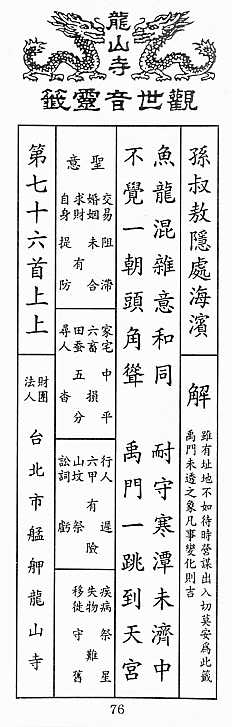 龍山寺
觀世音靈籤
孫叔敖隱處海濱
解
雖有址地不如待時營謀出入切莫安為此籤
禹門未透之象凡事變化則吉
魚龍混雜意和同 耐守寒潭未濟中
不覺一朝頭角聳 禹門一跳到天宮
聖意
交易 阻滯
婚姻 未合
求財 有
自身 提防
家宅 中平
六畜 損
田蚕 五分
尋人 杳
行人 遲
六甲 有險
山坟
訟詞 虧
疾病 祭星
失物 難
移徙 守舊
第七十六首上上
財團
法人
台北市艋舺龍山寺
76